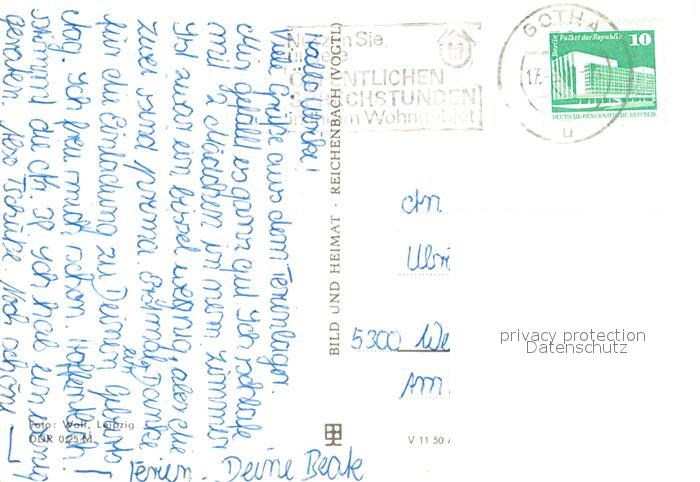 Hallo Ulrike!
Viele Grüße aus dem Ferienlager.
Mir gefällt es ganz gut. Ich schlafe
mit 2 Mädchen in einem Zimmer
ist zwar ein bissel wenig, aber die
zwei sind prima. Erstmal Danke
für die Einladung zu Deinem Geburts-
tag. Ich freu mich schon. Hoffentlich
stimmt die Nr. Ich hab ein wenig
geraten. Also Tschüß. Noch schöne
Ferien. Deine Beate
Foto: Wolf, Leipzig
DDR 0,25 M
BILD UND HEIMAT · REICHENBACH (VOGTL)
V 11 50
Sie,
ÖFFENTLICHEN
SPRECHSTUNDEN
Wohngebiet
GOTHA
17.
u
Berlin Palast der Republik
10
DEUTSCHE DEMOKRATISCHE REPUBLIK
An
Ulri
5300 We
Am
privacy protection
Datenschutz